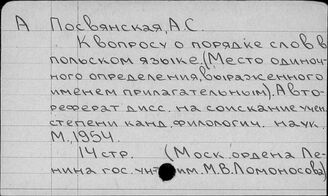 А Посвянская, А.С.
К вопросу о порядке слов в
польском языке. (Место одиноч-
ного определения, выраженного
именем прилагательным). Авто-
реферат дисс. на соискание учен.
степени канд. филологич. наук.
М., 1954.
14 стр. (Моск. ордена Ле-
нина гос. ун-т им. М.В. Ломоносова)